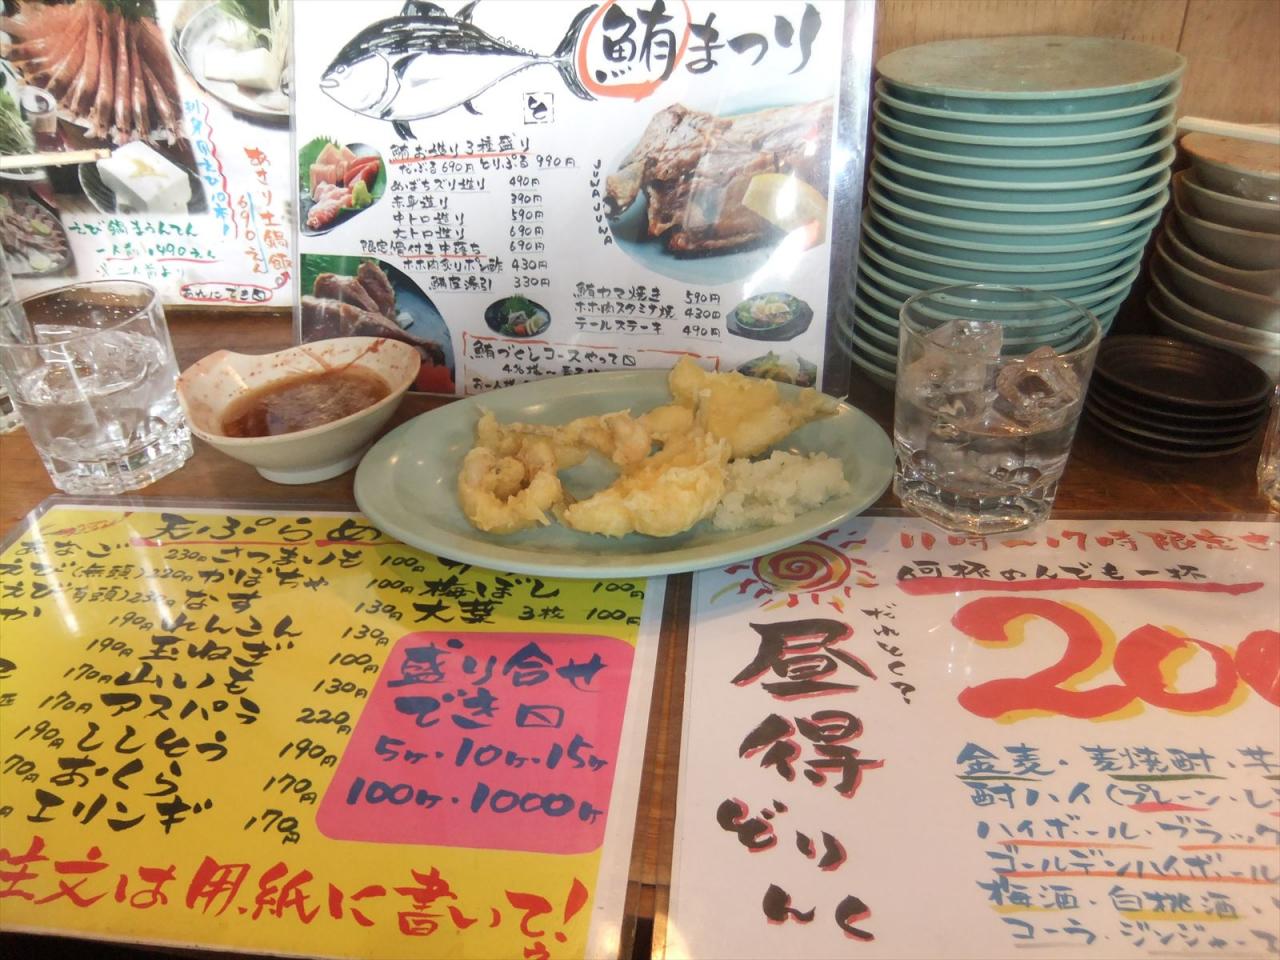 あさり土鍋飯
690えん
えび鍋まうんてん
一人前490えん
※二人前より
鮪まつり
鮪お造り3種盛り
だぶる690円 とりぷる990円
めばちズリ造り 490円
赤身造り 390円
中トロ造り 590円
大トロ造り 690円
限定骨付き中落ち 690円
ホホ肉炙りポン酢 430円
鮪皮湯引 330円
JUWA JUWA
鮪カマ焼き 590円
ホホ肉スタミナ焼 430円
テールステーキ 490円
鮪づくしコースやって口
4名様〜
天ぷらめ
あなご 230円 さつまいも 100円
えび(無頭)220円 かぼちゃ 100円 梅ぼし 100円
えび(有頭)230円 なす 130円 大葉 3枚 100円
か 190円 れんこん 130円
190円 玉ねぎ 100円
170円 山いも 130円
170円 アスパラ 220円
190円 ししとう 190円
70円 おくら 170円
エリンギ 170円
盛り合せ
でき口
5ヶ・10ヶ・15ヶ
100ヶ・1000ヶ
注文は用紙に書いて!
11時〜17時限定さ
何杯のんでも一杯
だれとくて、
昼得どりんく
200
金麦・麦焼酎・芋
酎ハイ(プレーン・レ
ハイボール・ブラック
ゴールデンハイボール
梅酒・白桃酒・
コーラ・ジンジャー